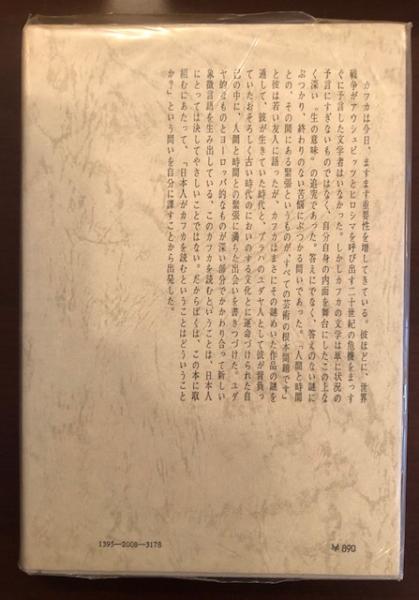 カフカは今日、ますます重要性を増してきている。彼ほどに、世界
戦争がアウシュビッツとヒロシマを呼び出す二十世紀の危機をまっす
ぐに予言した文学者はいなかった。しかしカフカの文学は単に状況の
予言にすぎないものではなく、自分自身の内面を舞台にしたこの上な
く深い"生の意味"の追究であった。答えにでなく、答えのない謎に
ぶつかり、終わりのない苦悩にぶつかる問いであった。「人間と時間
との、その間にある緊張というものが、すべての芸術の根本問題です」
と彼は若い友人に語ったが、カフカはまさにその謎めいた作品の謎を
通して、彼が生きていた時代と、プラハのユダヤ人として彼が背負っ
ていたおそろしく古い時代のにおいのする文化とに運命づけられた自
己の中に、人間と時間との緊張に満ちた出会いを書きつづけた。ユダ
ヤ的なものとヨーロッパ的なものが深い部分でかかわり合って新しい
象徴言語を生み出している、このカフカを読むということは、日本人
にとっては決してやさしいことではない。だからぼくは、この本に取
組むにあたって、「日本人がカフカを読むということはどういうこと
か?」という問いを自分に課すことから出発した。
1395—2008—3178
¥890